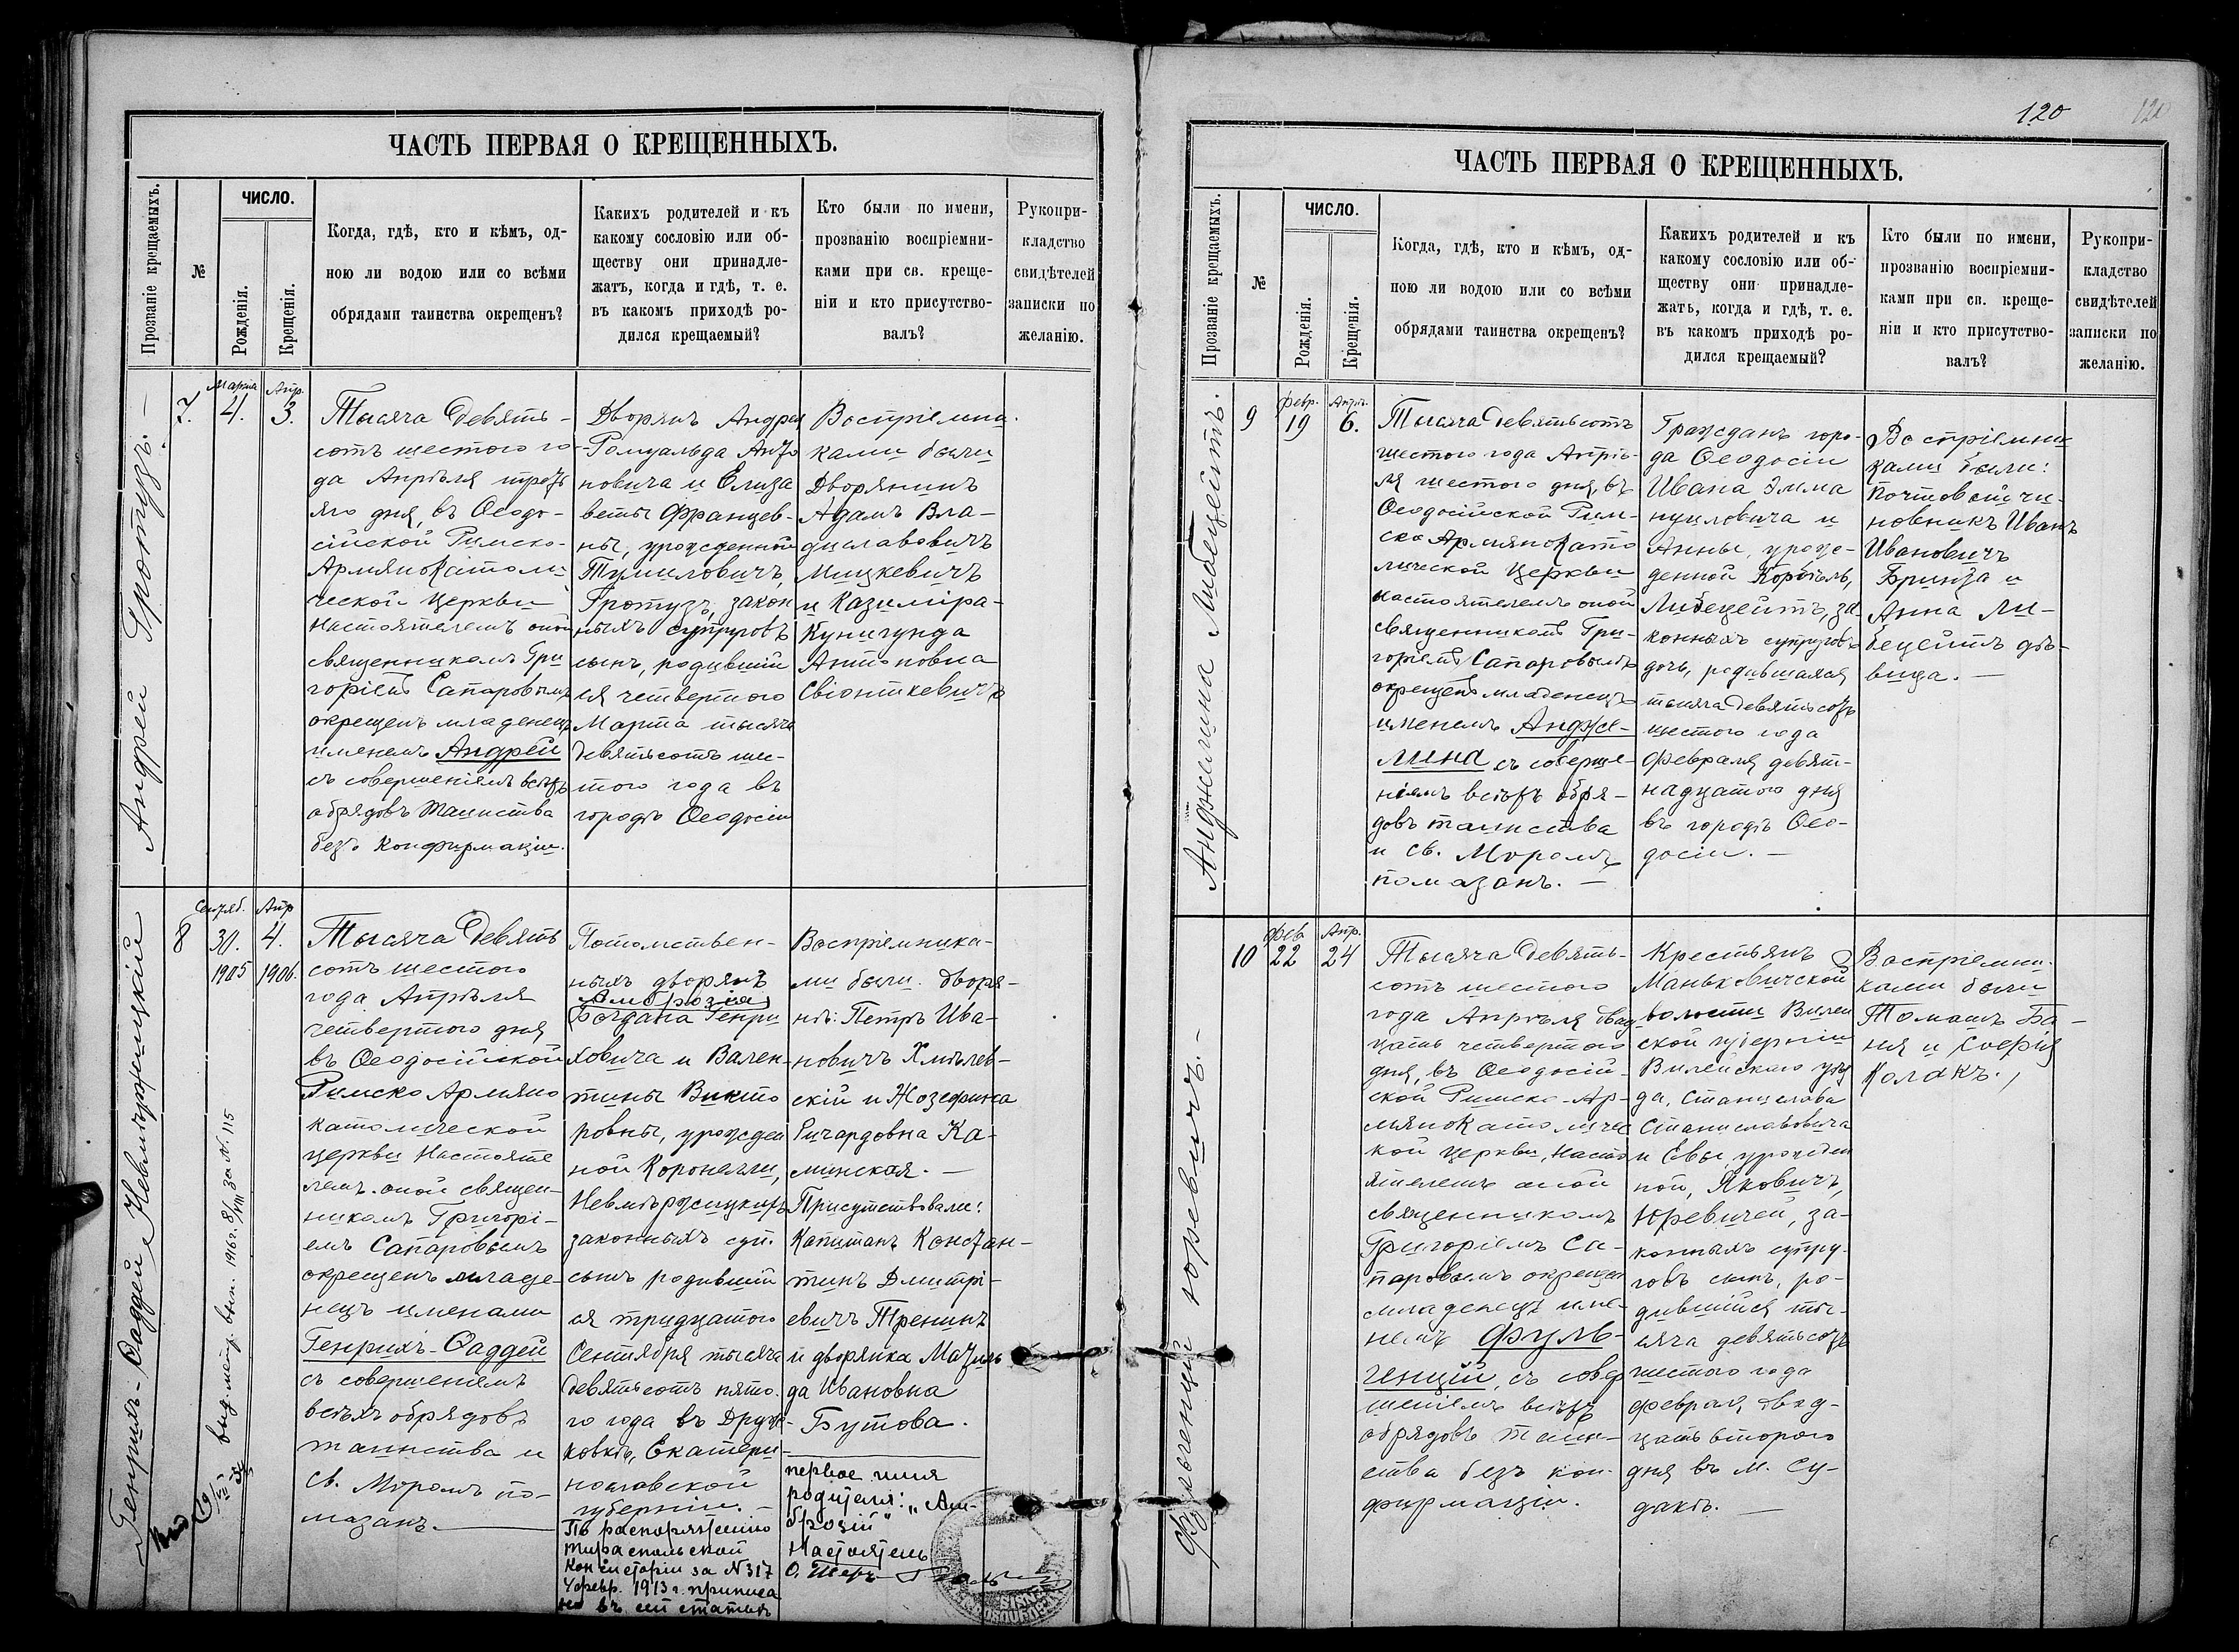 ЧАСТЬ ПЕРВАЯ О КРЕЩЕННЫХЪ.
Прозваніе крещаемыхъ.
№
ЧИСЛО.
Рожденія.
Крещенія.
Когда, гдѣ, кто и кѣмъ, од-
ною ли водою или со всѣми
обрядами таинства окрещенъ?
Какихъ родителей и къ
какому сословію или об-
ществу они принадле-
жатъ, когда и гдѣ, т. е.
въ какомъ приходѣ ро-
дился крещаемый?
Кто были по имени,
прозванію воспріемни-
ками при св. креще-
ніи и кто присутство-
валъ?
Рукопри-
кладство
свидѣтелей
записки по
желанію.
Андрей Гротузъ. —
7.
Марта
4.
Апр.
3.
Тысяча девять-
сотъ шестого го-
да Апрѣля треть
яго дня, въ Ѳеодо-
сійской Римско-
Армянокатоли
ческой церкви
настоятелемъ оной
священникомъ Гри
горіемъ Сапаровымъ
окрещенъ младенецъ
именемъ Андрей
съ совершеніемъ всѣхъ
обрядовъ таинства
безъ конфирмаціи.
Дворянъ Андрея
Ромуальда Анто
новича и Елиза
веты Францев-
ны, урожденной
Тумиловичъ,
Гротузъ, закон
ныхъ супруговъ
сынъ, родившій
ся четвертого
Марта тысяча
девятьсотъ шес-
того года въ
городѣ Ѳеодосіи
Воспріемни-
ками были
Дворянинъ
Адамъ Вла-
диславовичъ
Мицкевичъ
и Казиміра-
Кунигунда
Антоновна
Свіонткевичъ
Генрихъ-Ѳаддей Невмѣржицкій
8
Сентяб.
30.
1905
Апр
4.
1906.
выд. метр. вып. 1916 г. 8/VIII за N. 115
Тысяча девять
сотъ шестого
года Апрѣля
четвертого дня
въ Ѳеодосійской
Римско Армяно
католической
церкви настояте
лемъ оной священ-
никомъ Григорі-
емъ Сапаровымъ
окрещенъ младе-
нецъ именами
Генрихъ-Ѳаддей
съ совершеніемъ
всѣхъ обрядовъ
таинства и
св. Мѵромъ по-
мазанъ. —
Потомствен-
ныхъ дворянъ
Амброзія
Богдана Генри
ховича и Вален-
тины Викто
ровны, урожден
ной Коронелли,
Невмѣржицкихъ
законныхъ суп.
сынъ родившій
ся тридцатого
Сентября тысяча
девятьсотъ пято-
го года въ Друж-
ковкѣ, Екатери-
нославской
губерніи. —
По распоряженію
Тираспольской
Консисторіи за N 317
4 февр. 1913 г. приписа
но въ сей статьѣ
Воспріемника-
ми были. дворя-
нѣ: Петръ Ива-
новичъ Хмѣлев-
скій и Жозефина
Ричардовна Ка-
минская. —
Присутствовали:
Капитанъ Констан-
тинъ Дмитрі-
евичъ Тренинъ
и дворянка Матиль
да Ивановна
Бутова.
первое имя
родителя: „Ам-
брозій"
Настоятель
120
120
ЧАСТЬ ПЕРВАЯ О КРЕЩЕННЫХЪ.
Прозваніе крещаемыхъ.
№
ЧИСЛО.
Рожденія.
Крещенія.
Когда, гдѣ, кто и кѣмъ, од-
ною ли водою или со всѣми
обрядами таинства окрещенъ?
Какихъ родителей и къ
какому сословію или об-
ществу они принадле-
жатъ, когда и гдѣ, т. е.
въ какомъ приходѣ ро-
дился крещаемый?
Кто были по имени,
прозванію воспріемни-
ками при св. креще-
ніи и кто присутство-
валъ?
Рукопри-
кладство
свидѣтелей
записки по
желанію.
Анджелина Либецейтъ.
9
февр.
19
Апр.
6.
Тысяча девятьсотъ
шестого года Апрѣ-
ля шестого дня, въ
Ѳеодосійской Рим-
ско Армянокато
лической церкви
настоятелемъ оной
священникомъ Гри-
горіемъ Сапаровымъ
окрещенъ младенецъ
именемъ Андже-
лина съ соверше-
ніемъ всѣхъ обря-
довъ таинства
и св. Мѵромъ
помазанъ. —
Гражданъ горо-
да Ѳеодосіи
Ивана Эмма
нуиловича и
Анны, урож-
денной Корбель,
Либецейтъ, за
конныхъ супруговъ
дочь, родившаяся
тысяча девятьсотъ
шестого года
Февраля девят-
надцатого дня
въ городѣ Ѳео-
досіи. —
Воспріемни
ками были:
почтовый чи-
новникъ Иванъ
Ивановичъ
Бринза и
Анна Ли-
бецейтъ дѣ-
вица. —
Фульгенцій Юревичъ. —
10
фев
22
Апр.
24
Тысяча девять-
сотъ шестого
года Апрѣля двад
цать четвертого
дня, въ Ѳеодосій-
ской Римско-Ар-
мянокатоличес
кой церкви, насто
ятелемъ оной
священникомъ
Григоріемъ Са-
паровымъ окрещен
младенецъ име-
немъ Фуль-
генцій, съ совер
шеніемъ всѣхъ
обрядовъ таин-
ства безъ кон-
фирмаціи.
Крестьянъ
Маньковичской
волости Вилен
ской губерніи
Вилейскаго уѣз
да, Станислава
Станиславовича
и Евы урожден
ной, Яковичъ,
Юревичей, за-
конныхъ супру-
говъ сынъ, ро-
дившійся ты-
сяча девятьсотъ
шестого года
февраля двад-
цать второго
дня въ м. Су-
дакѣ. —
Воспріемни-
ками были
Томашъ Ба-
ня и Софія
Колакъ.